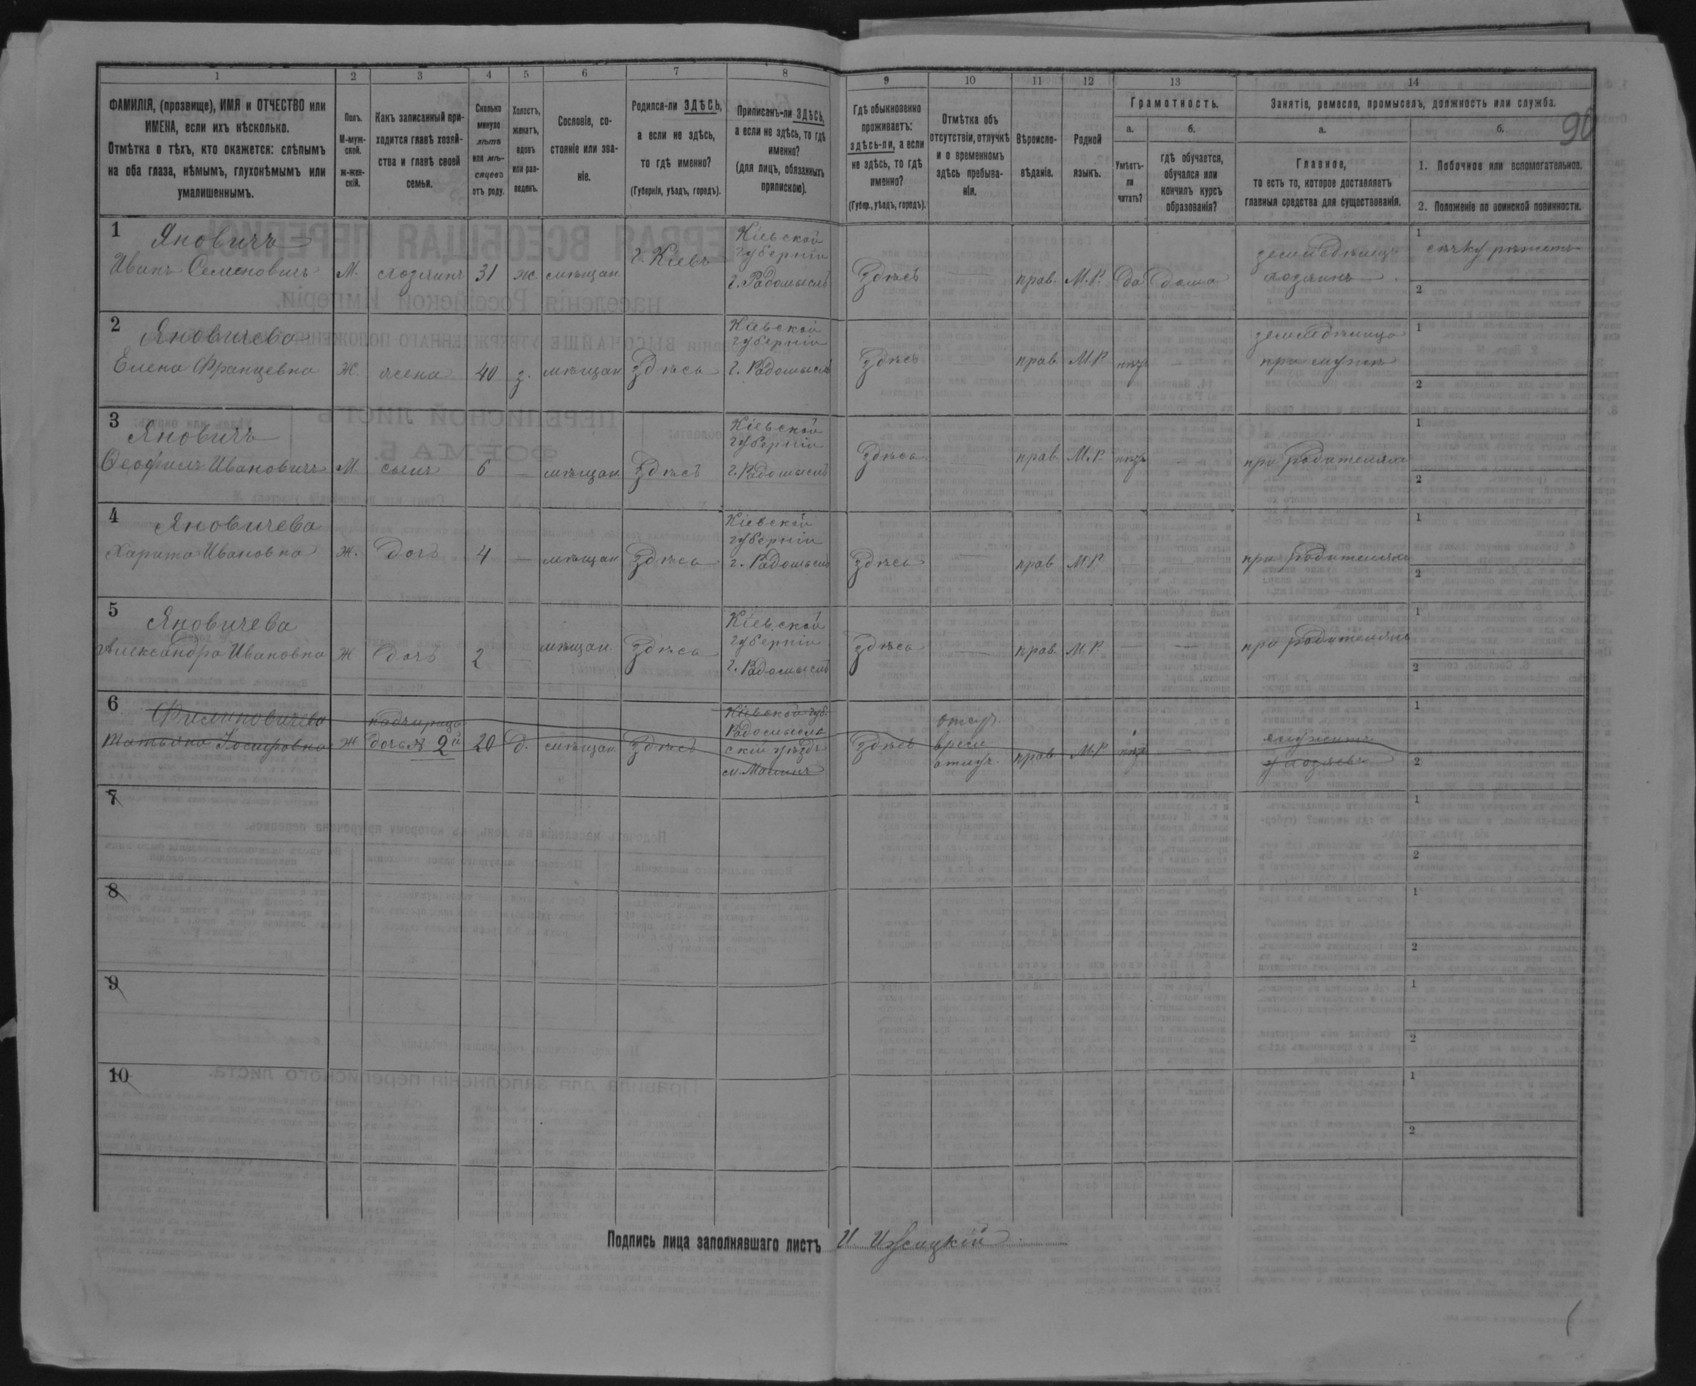 90
1 2 3 4 5 6 7 8 9 10 11 12 13 14
ФАМИЛІЯ, (прозвище), ИМЯ и ОТЧЕСТВО или
ИМЕНА, если ихъ нѣсколько.
Отмѣтка о тѣхъ, кто окажется: слѣпымъ
на оба глаза, нѣмымъ, глухонѣмымъ или
умалишеннымъ.
Полъ.
М-муж-
ской.
Ж-жен-
скій.
Какъ записанный при-
ходится главѣ хозяй-
ства и главѣ своей
семьи.
Сколько
минуло
лѣтъ
или мѣ-
сяцевъ
отъ роду.
Холостъ,
женатъ,
вдовъ
или раз-
веденъ.
Сословіе, со-
стояніе или зва-
ніе.
Родился-ли ЗДѢСЬ,
а если не здѣсь,
то гдѣ именно?
(Губернія, уѣздъ, городъ).
Приписанъ-ли ЗДѢСЬ,
а если не здѣсь, то гдѣ
именно?
(для лицъ, обязанныхъ
припискою).
Гдѣ обыкновенно
проживаетъ:
здѣсь-ли, а если
не здѣсь, то гдѣ
именно?
(Губер., уѣздъ, городъ).
Отмѣтка объ
отсутствіи, отлучкѣ
и о временномъ
здѣсь пребыва-
ніи.
Вѣроиспо-
вѣданіе.
Родной
языкъ.
Грамотность.
а.
Умѣетъ-
ли
читать?
б.
гдѣ обучается,
обучался или
кончилъ курсъ
образованія?
Занятіе, ремесло, промыселъ, должность или служба.
а.
Главное,
то есть то, которое доставляетъ
главныя средства для существованія.
б.
1. Побочное или вспомогательное.
2. Положеніе по воинской повинности.
1 Яновичъ
Иванъ Семеновичъ М. хозяинъ 31 ж мѣщан г. Кіевъ
Кіевской
губерніи
г. Радомысль
Здѣсь — прав. М.Р. да дома
хозяинъ
1
2
2 Яновичева
Елена Францевна Ж. жена 40 з. мѣщан Здѣсь
Кіевской
губерніи
г. Радомысль
Здѣсь прав М.Р. —
при мужѣ
1
2
3 Яновичъ
Феофилъ Ивановичъ М. сынъ 6 — мѣщан Здѣсь
Кіевской
губерніи
г. Радомысль
Здѣсь прав. М.Р. —
при родителяхъ
1
2
4 Яновичева
Харита Ивановна Ж. дочь 4 — мѣщан Здѣсь
Кіевской
губерніи
г. Радомысль
Здѣсь — прав М.Р — —
при родителяхъ
1
2
5 Яновичева
Александра Ивановна Ж дочь 2 — мѣщан Здѣсь
Кіевской
губерніи
г. Радомысль
Здѣсь — прав. М.Р. — —
при родителяхъ
1
2
6
Татьяна Іосифовна Ж дочь 2й 20 д. мѣщан Здѣсь
Кіевской губ
Радомысль
скій уѣздъ
м. Малинъ
Здѣсь
прав М.Р —
1
2
7 1
2
8 1
2
9 1
2
10 1
2
Подпись лица заполнявшаго листъ И Ижицкій